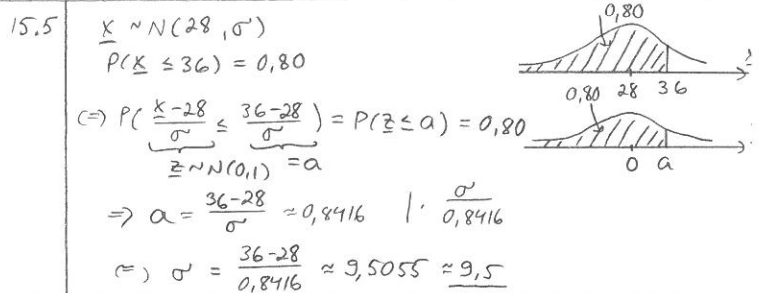 15.5 x ~ N(28, σ)
P(x ≤ 36) = 0,80
(=) P( (x-28)/σ ≤ (36-28)/σ ) = P(z ≤ a) = 0,80
z ~ N(0,1) = a
=> a = (36-28)/σ ≈ 0,8416 | · σ/0,8416
(=) σ = (36-28)/0,8416 ≈ 9,5055 ≈ 9,5
0,80
28 36
0,80
0 a